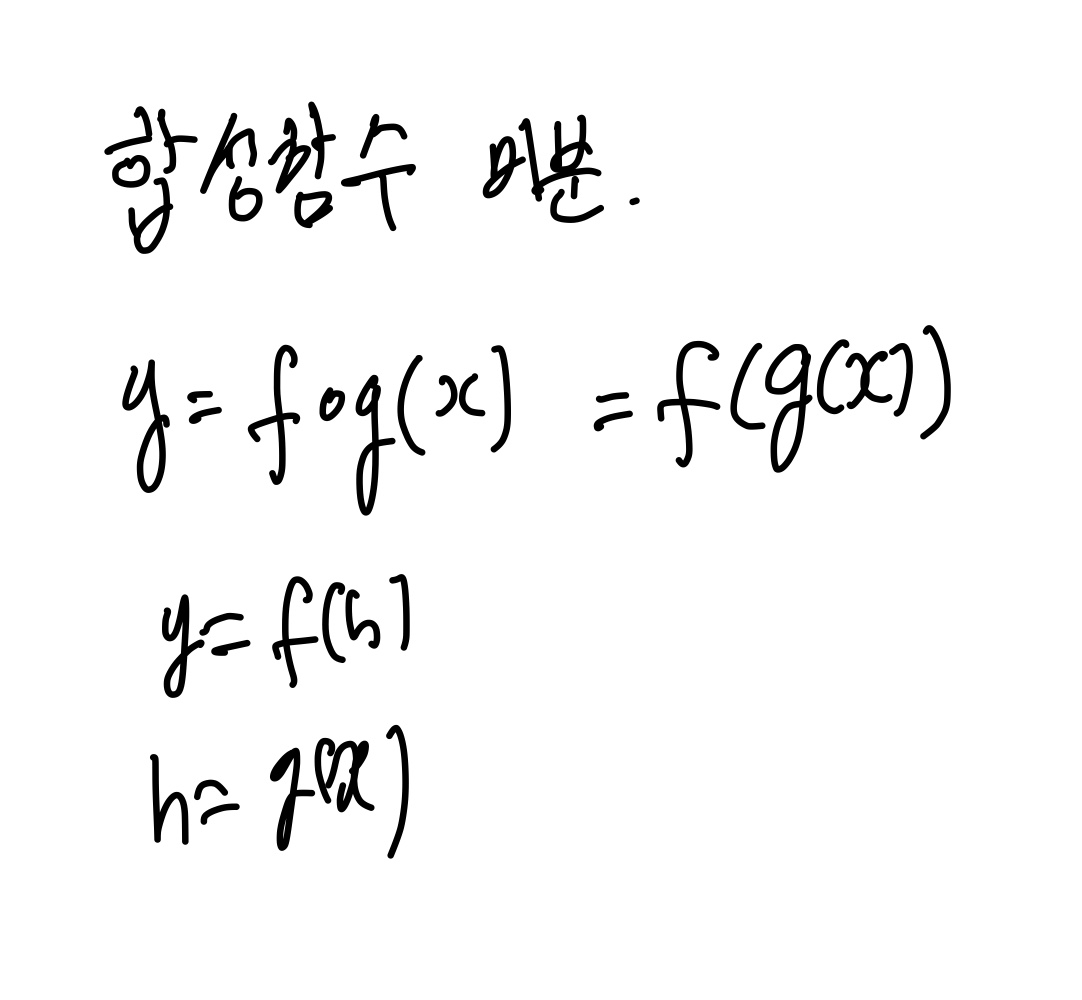 합성함수 미분.
y = f∘g(x) = f(g(x))
y = f(h)
h = g(x)